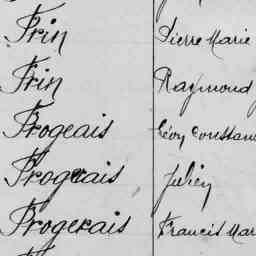 Frin Pierre Marie
Frin Raymond
Frogeais Léon Constan
Froguais Julien
Frogerais Francis Mar